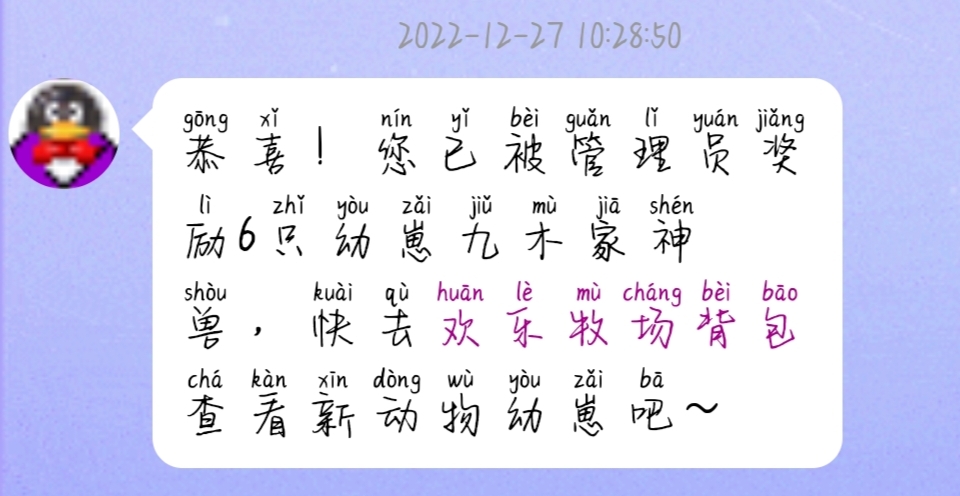 2022-12-27 10:28:50
gōng xǐ nín yǐ bèi guǎn lǐ yuán jiǎng
恭喜！您已被管理员奖
lì zhǐ yòu zǎi jiǔ mù jiā shén
励6只幼崽九木家神
shòu kuài qù huān lè mù cháng bèi bāo
兽，快去欢乐牧场背包
chá kàn xīn dòng wù yòu zǎi bā
查看新动物幼崽吧~